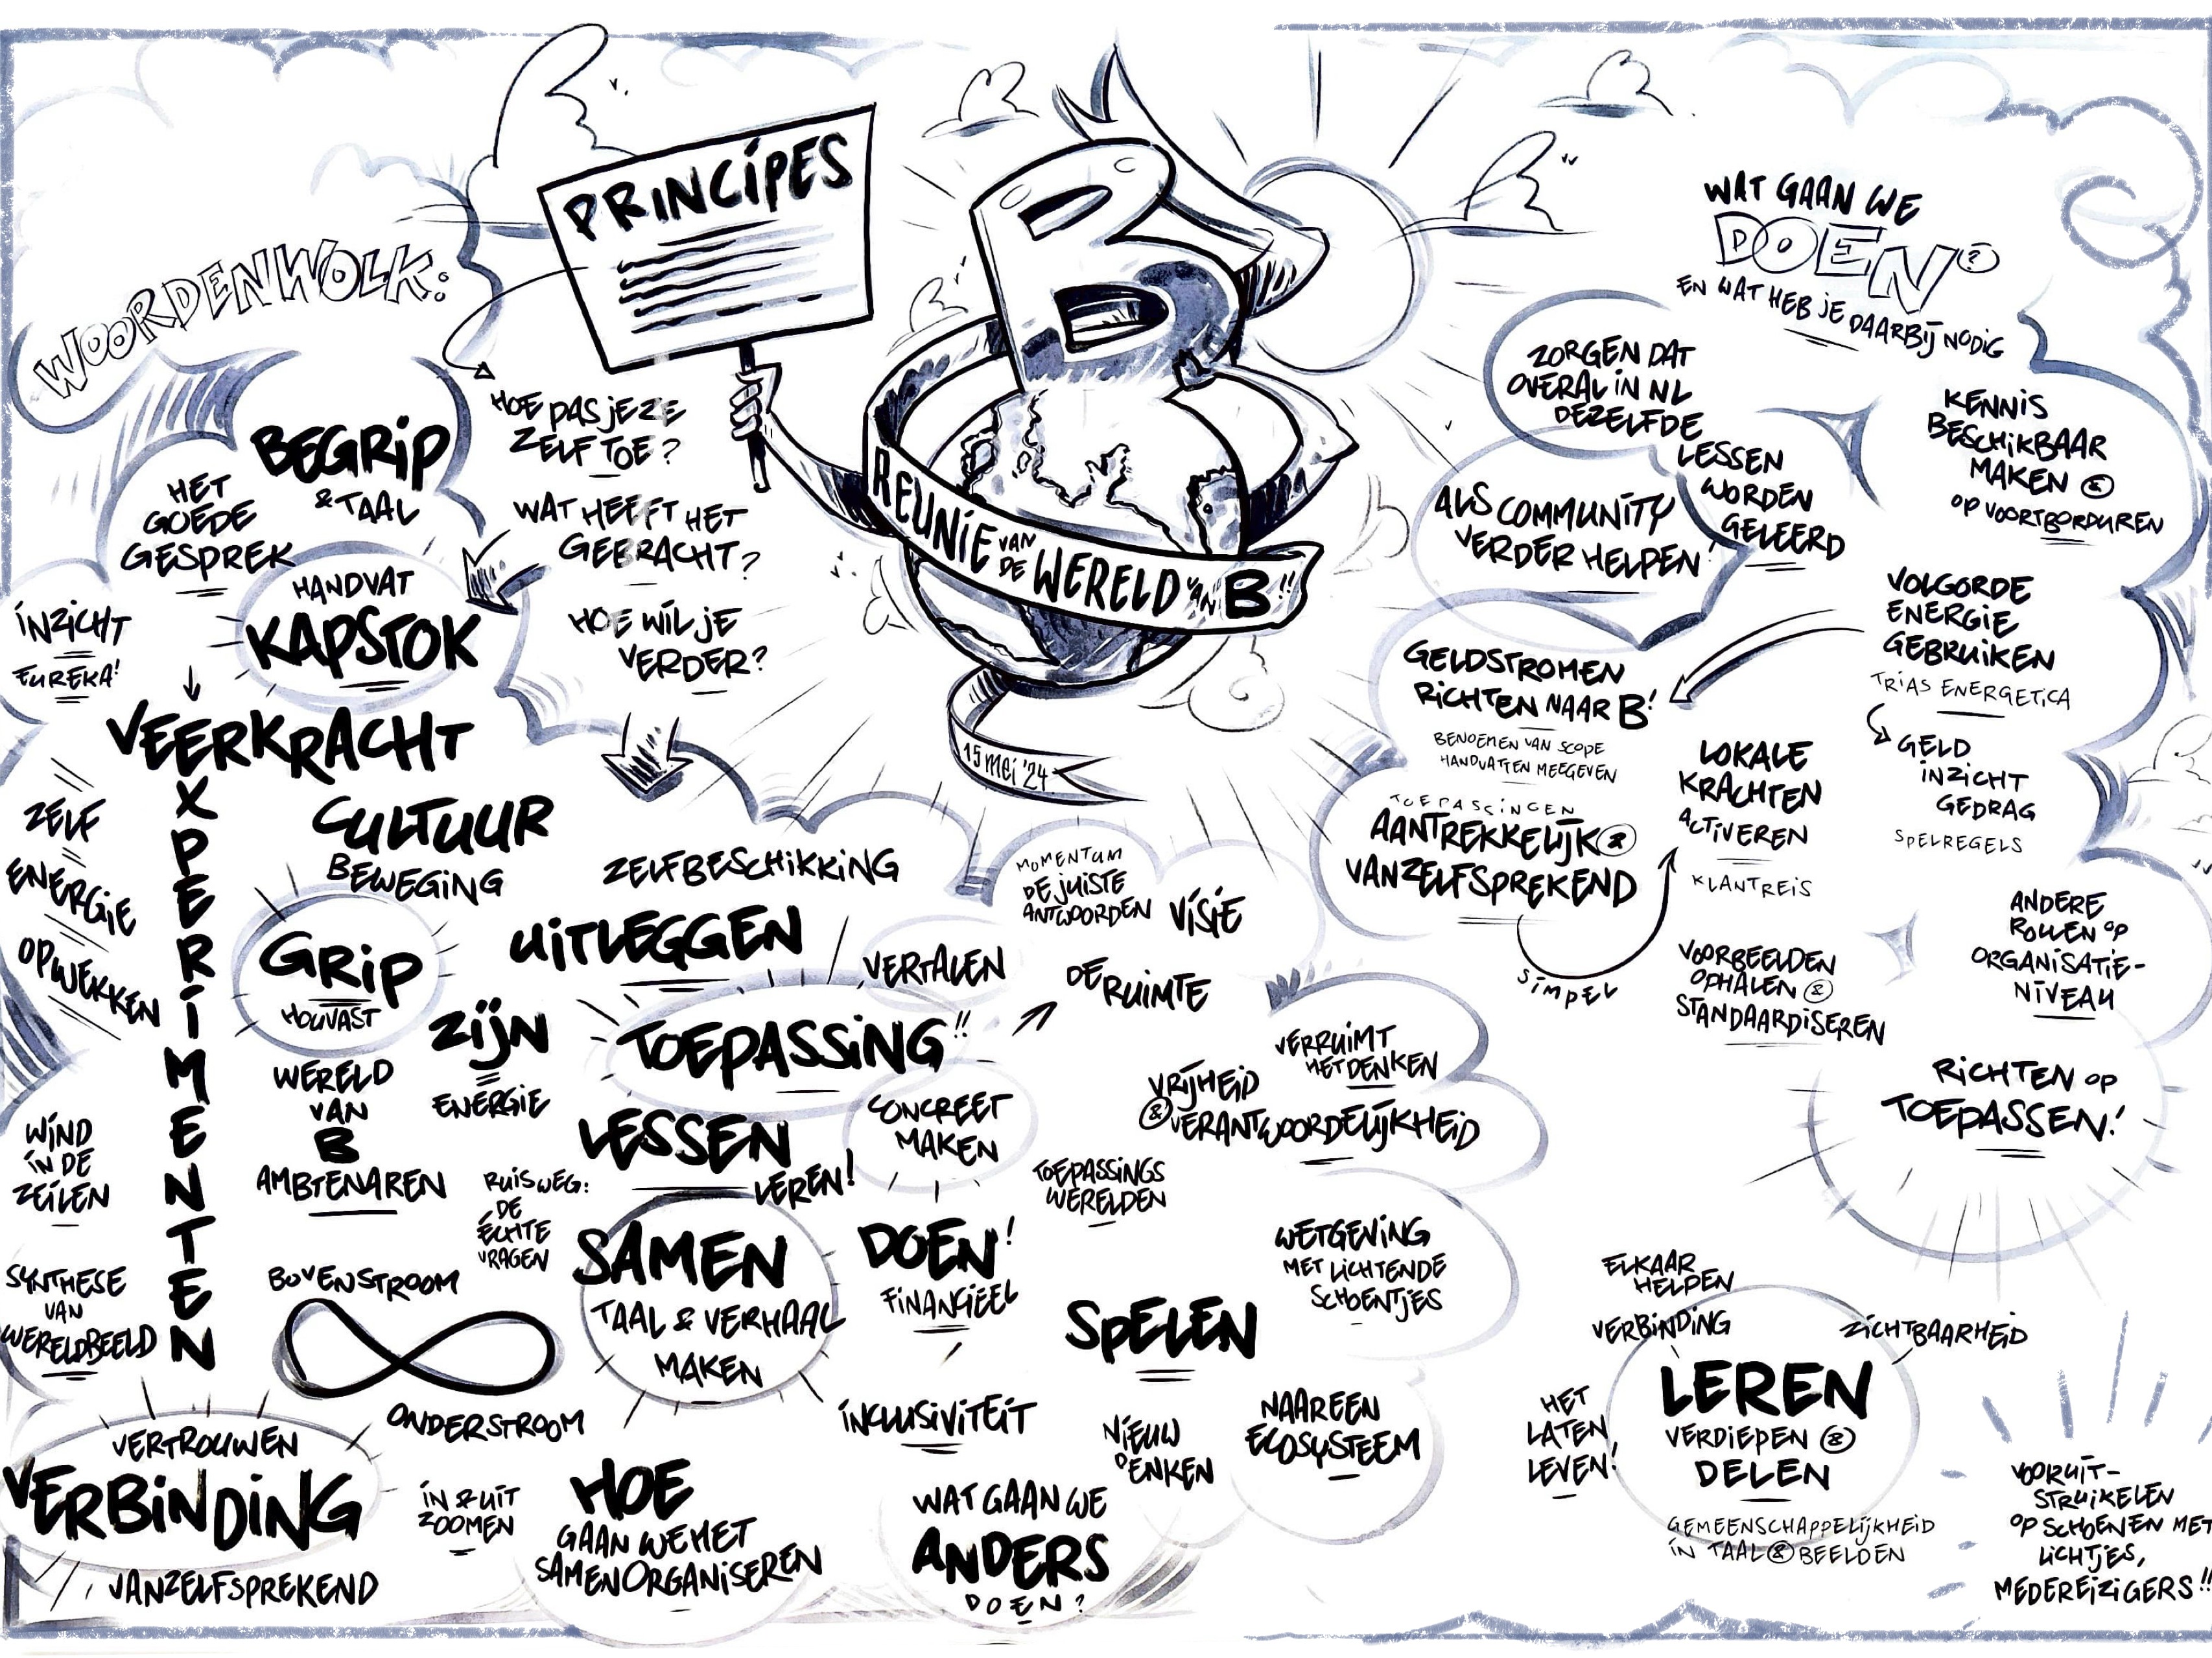 WOORDENWOLK:
PRINCÍPES
HOE PAS JE ZE
ZELF TOE?
WAT HEEFT HET
GEBRACHT?
HOE WIL JE
VERDER?
B
REUNIE VAN DE WERELD VAN B!!
15 mei '24
BEGRIP
& TAAL
HET
GOEDE
GESPREK
HANDVAT
KAPSTOK
INZICHT
EUREKA!
VEERKRACHT
EXPERIMENTEN
CULTUUR
BEWEGING
ZELF
ENERGIE
OPWEKKEN
GRIP
HOUVAST
ZELFBESCHIKKING
UITLEGGEN
VERTALEN
ZIJN
ENERGIE
TOEPASSING!!
WERELD
VAN
B
AMBTENAREN
LESSEN
LEREN!
CONCREET
MAKEN
WIND
IN DE
ZEILEN
RUIS WEG:
DE
ECHTE
VRAGEN
SAMEN
TAAL & VERHAAL
MAKEN
DOEN!
FINANCIEEL
SYNTHESE
VAN
WERELDBEELD
BOVENSTROOM
ONDERSTROOM
VERTROUWEN
VERBINDING
VANZELFSPREKEND
IN & UIT
ZOOMEN
HOE
GAAN WE HET
SAMEN ORGANISEREN
INCLUSIVITEIT
WAT GAAN WE
ANDERS
DOEN?
MOMENTUM
DE JUISTE
ANTWOORDEN
VISIE
DE RUIMTE
VERRUIMT
HET DENKEN
VRIJHEID
& VERANTWOORDELIJKHEID
TOEPASSINGS
WERELDEN
WETGEVING
MET LICHTENDE
SCHOENTJES
SPELEN
NIEUW
DENKEN
NAAR EEN
ECOSYSTEEM
WAT GAAN WE
DOEN?
EN WAT HEB JE DAARBIJ NODIG
ZORGEN DAT
OVERAL IN NL
DEZELFDE
LESSEN
WORDEN
GELEERD
ALS COMMUNITY
VERDER HELPEN!
KENNIS
BESCHIKBAAR
MAKEN &
OP VOORTBORDUREN
VOLGORDE
ENERGIE
GEBRUIKEN
TRIAS ENERGETICA
GELD
INZICHT
GEDRAG
SPELREGELS
GELDSTROMEN
RICHTEN NAAR B!
BENOEMEN VAN SCOPE
HANDVATTEN MEEGEVEN
TOEPASSINGEN
AANTREKKELIJK &
VANZELFSPREKEND
SIMPEL
LOKALE
KRACHTEN
ACTIVEREN
KLANTREIS
VOORBEELDEN
OPHALEN &
STANDAARDISEREN
ANDERE
ROLLEN OP
ORGANISATIE-
NIVEAU
RICHTEN OP
TOEPASSEN!
ELKAAR
HELPEN
VERBINDING
ZICHTBAARHEID
HET
LATEN
LEVEN!
LEREN
VERDIEPEN &
DELEN
GEMEENSCHAPPELIJKHEID
IN TAAL & BEELDEN
VOORUIT-
STRUIKELEN
OP SCHOENEN MET
LICHTJES,
MEDEREIZIGERS!!